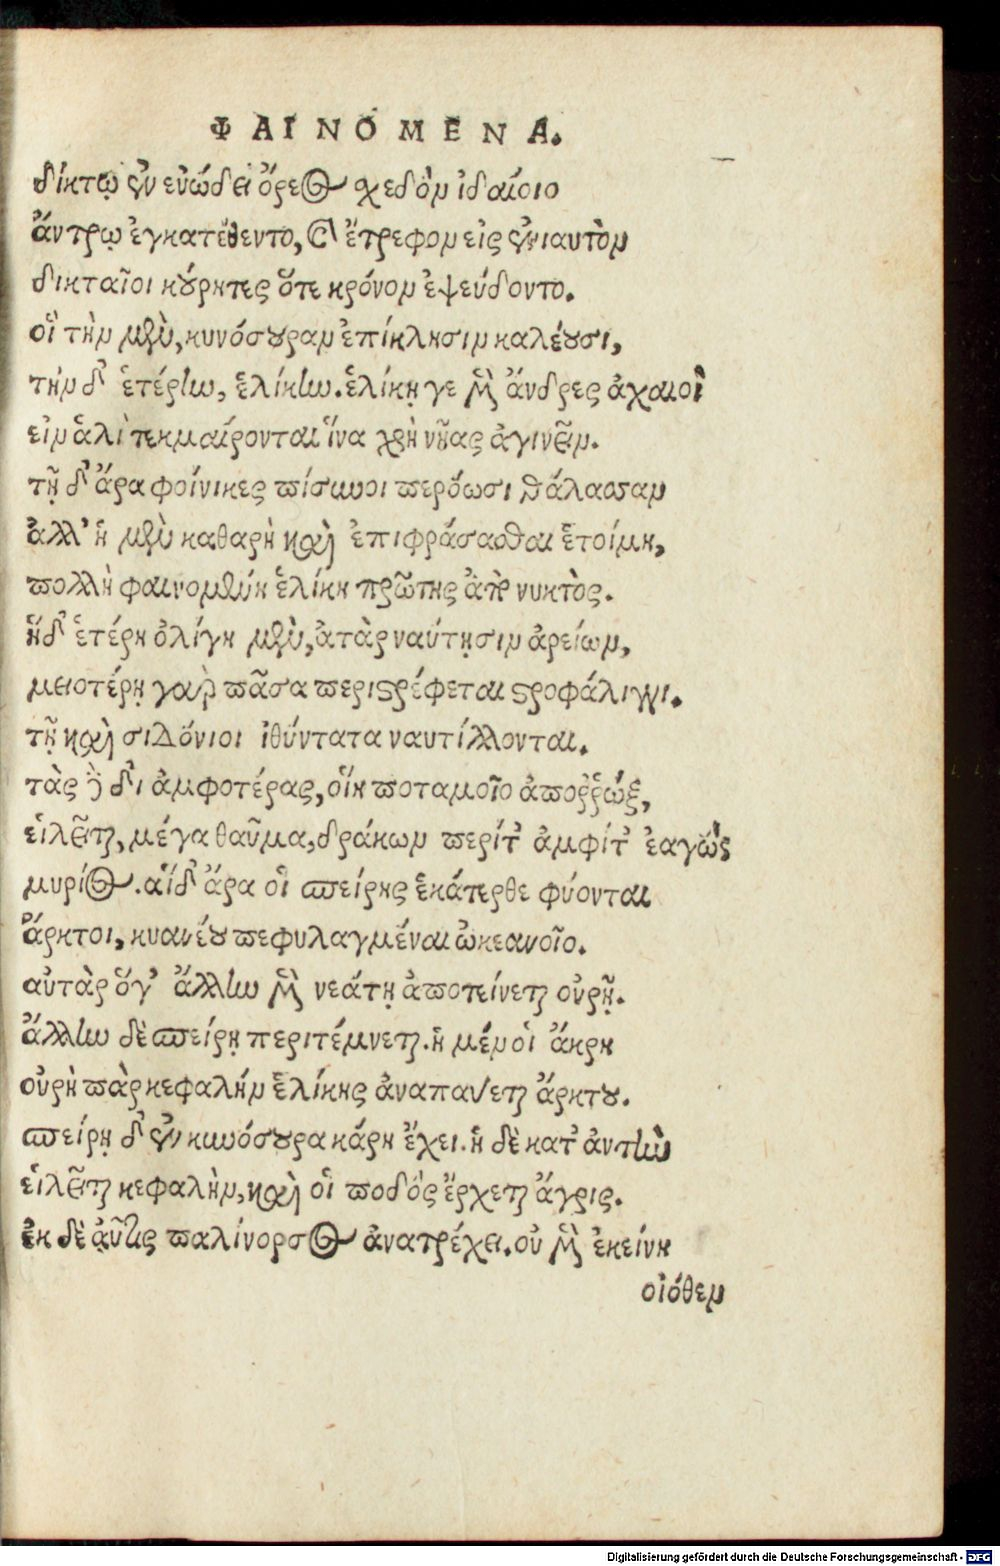 ΦΑΙΝΟΜΕΝΑ.
δίκτῳ ἐν εὐώδει ὄρεος σχεδὸν ἰδαίοιο
ἄντρῳ ἐγκατέθεντο, καὶ ἔτρεφον εἰς ἐνιαυτὸν
δικταῖοι κούρητες ὅτε κρόνον ἐψεύδοντο.
οἳ τὴν μὲν, κυνόσουραν ἐπίκλησιν καλέουσι,
τὴν δ' ἑτέρην, ἑλίκην. ἑλίκῃ γε μὲν ἄνδρες ἀχαιοὶ
εἰν ἁλὶ τεκμαίρονται ἵνα χρὴ νῆας ἀγινεῖν.
τῇ δ' ἄρα φοίνικες πίσυνοι περόωσι θάλασσαν
ἀλλ' ἡ μὲν καθαρὴ καὶ ἐπιφράσασθαι ἑτοίμη,
πολλὴ φαινομένη ἑλίκη πρώτης ἀπὸ νυκτὸς.
ἡ δ' ἑτέρη ὀλίγη μὲν, ἀτὰρ ναύτῃσιν ἀρείων,
μειοτέρῃ γὰρ πᾶσα περιστρέφεται στροφάλιγγι.
τῇ καὶ σιδόνιοι ἰθύντατα ναυτίλλονται.
τὰς δὲ δι ἀμφοτέρας, οἵη ποταμοῖο ἀποῤῥώξ,
εἱλεῖται, μέγα θαῦμα, δράκων περίτ' ἀμφίτ' ἐαγὼς
μυρίος. αἱ δ' ἄρα οἱ σπείρης ἑκάτερθε φύονται
ἄρκτοι, κυανέου πεφυλαγμέναι ὠκεανοῖο.
αὐτὰρ ὅγ' ἄλλην μὲν νεάτῃ ἀποτείνεται οὐρῇ.
ἄλλην δὲ σπείρῃ περιτέμνεται. ἡ μέν οἱ ἄκρη
οὐρὴ πὰρ κεφαλήν ἑλίκης ἀναπαύεται ἄρκτου.
σπείρῃ δ' ἐν κυνόσουρα κάρη ἔχει. ἡ δὲ κατ' ἀντὴν
εἱλεῖται κεφαλὴν, καὶ οἱ ποδὸς ἔρχεται ἄχρις.
ἐκ δὲ αὖτις παλίνορσος ἀνατρέχει. οὐ μὲν ἐκείνη
οἰόθεν
Digitalisierung gefördert durch die Deutsche Forschungsgemeinschaft - DFG